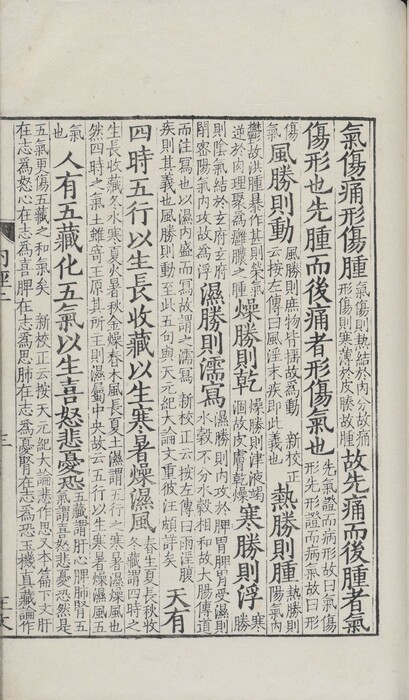 氣傷痛形傷腫
氣傷則熱結於肉分故痛
形傷則寒薄於皮腠故腫
故先痛而後腫者氣
傷形也先腫而後痛者形傷氣也
先氣證而病形故曰氣傷
形先形證而病氣故曰形
傷
氣
風勝則動
風勝則庶物皆搖故為動　新校正
云按左傳曰風淫末疾即此義也
熱勝則腫
熱勝則
陽氣內
鬱故洪腫暴作甚則榮氣
逆於肉理聚為癰膿之腫
燥勝則乾
燥勝則津液竭
涸故皮膚乾燥
寒勝則浮
寒
勝
則陰氣結於玄府玄府
閉密陽氣內攻故為浮
濕勝則濡寫
濕勝則內攻於脾胃脾胃受濕則
水穀不分水穀相和故大腸傳道
而注寫也以濕內盛而寫故謂之濡寫　新校正云按左傳曰雨淫腹
疾則其義也風勝則動至此五句與天元紀大論文重彼注頗詳矣
天有
四時五行以生長收藏以生寒暑燥濕風
春生夏長秋收
冬藏謂四時之
生長收藏冬水寒夏火暑秋金燥春木風長夏土濕謂五行之寒暑濕燥風也
然四時之氣土雖寄王原其所主則濕屬中央故云五行以生寒暑燥濕風五
氣
也
人有五藏化五氣以生喜怒悲憂恐
五藏謂肝心脾肺腎五
氣謂喜怒悲憂恐然是
五氣更傷五藏之和氣矣　新校正云按天元紀大論悲作思又本篇下文肝
在志為怒心在志為喜脾在志為思肺在志為憂腎在志為恐玉機真藏論作
內經二
三